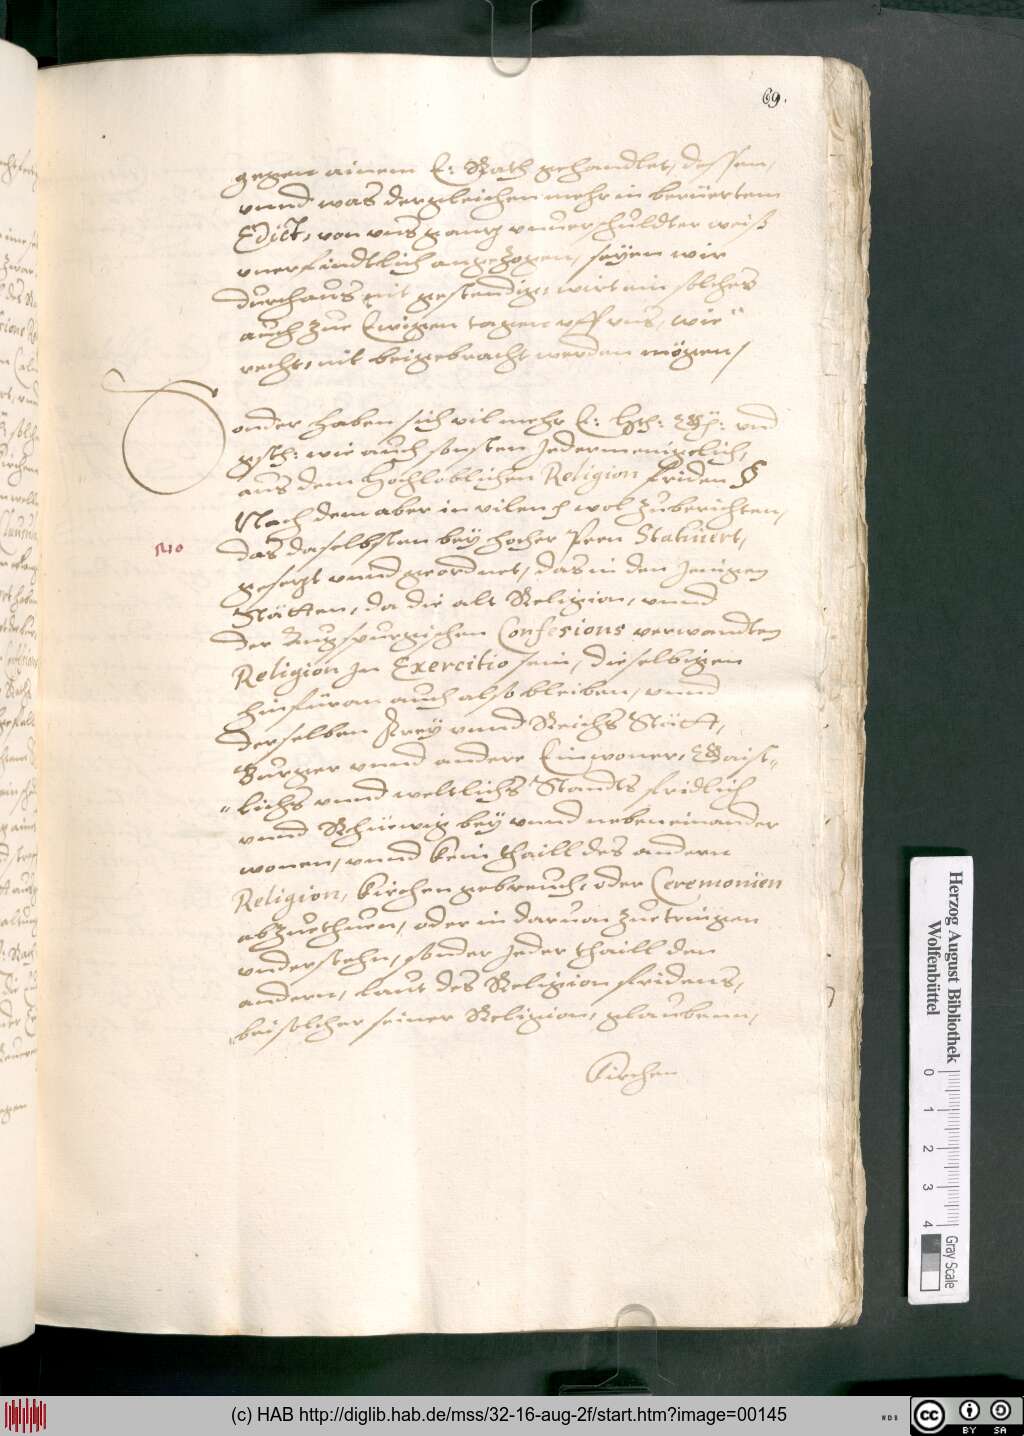 69.
gegen ainem E: Rath gehandlet, dessen,
vnnd was dergleichen mehr in berüertem
Edict, von vns gantz vnuerschuldter weiß
vnerfindtlich angezogen, seyen wir
durchaus nit gestendig, wirt ein solches
auch zue Ewigen tagen vff vns, wie
recht, nit beigebracht werden mögen,
Sonder haben sich vil mehr E: vnd
gsth: wie auch sonsten Jedermeniglich,
aus dem Hochloblichen Religion friden §
Nach dem aber in vilen etc wol zuberichten,
das daselbsten bey hocher Peen Statuiert,
gesetzt vnnd geordnet, das in den Jenigen
Stätten, da die alt Religion, vnnd
der Augspurgischen Confesions verwandten
Religion In Exercitio sein, dieselbigen
hinfüran auch also bleiben, vnnd
derselben Frey vnnd Reichs Stätt,
Burger vnnd andere Einwoner, Gaist-
lichs vnnd weltlichs Standts fridlich
vnnd Rhüewig bey vnnd nebeneinander
wonen, vnnd kein thaill des andern
Religion, kirchengebreuch, oder Ceremonien
abzuethuen, oder in daruon zuetringen
vnderstehn, sonder Jeder thaill den
andern, laut des Religion fridens,
bei solcher seiner Religion, glaubenn,
kirchen
Herzog August Bibliothek
Wolfenbüttel
0 1 2 3 4
Gray Scale
(c) HAB http://diglib.hab.de/mss/32-16-aug-2f/start.htm?image=00145
cc BY SA